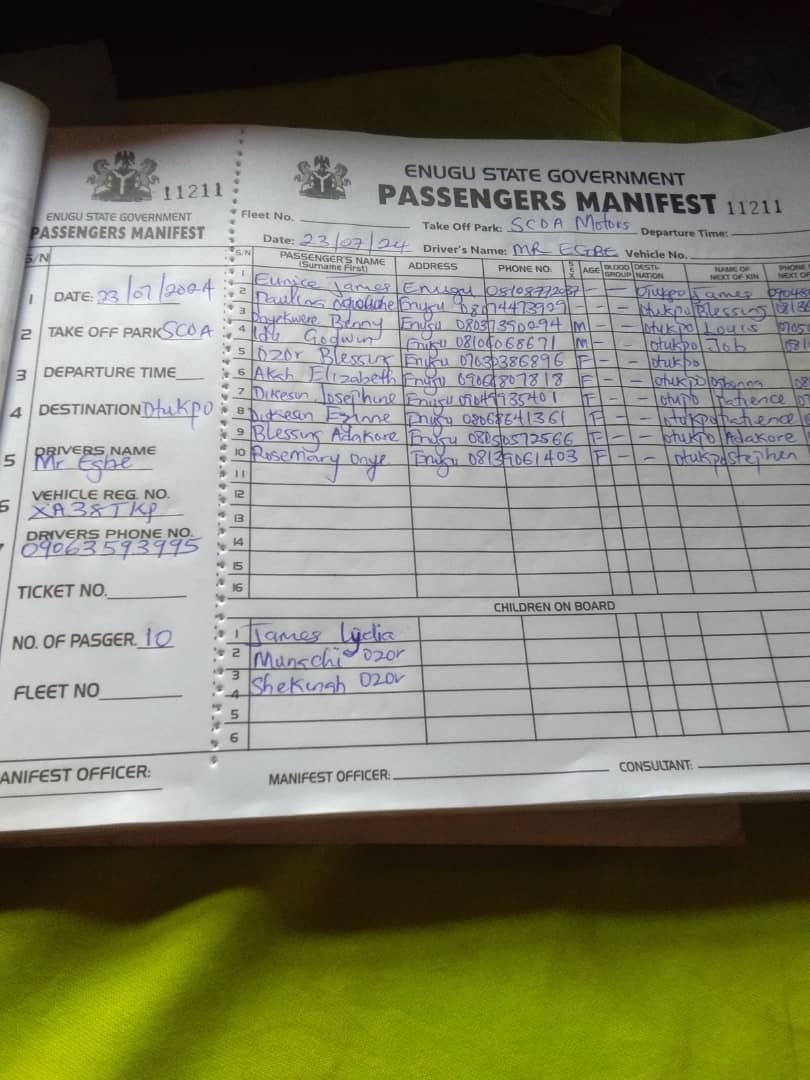 11211
ENUGU STATE GOVERNMENT
PASSENGERS MANIFEST
S/N
1 DATE: 23/07/2024
2 TAKE OFF PARK SCOA
3 DEPARTURE TIME
4 DESTINATION Otukpo
5 DRIVERS NAME
Mr Egbe
6 VEHICLE REG. NO.
XA38TKP
DRIVERS PHONE NO.
09063593995
TICKET NO.
NO. OF PASGER. 10
FLEET NO
MANIFEST OFFICER:
ENUGU STATE GOVERNMENT
PASSENGERS MANIFEST 11211
Fleet No. Take Off Park: SCOA Motors Departure Time:
Date: 23/07/24 Driver's Name: MR EGBE Vehicle No.
S/N PASSENGER'S NAME (Surname First) ADDRESS PHONE NO. SEX AGE BLOOD GROUP DESTINATION NAME OF NEXT OF KIN PHONE
1 Eunice James Enugu 08108772037 - - Otukpo James
2 Paulina Enugu 08174473929 - - Otukpo Blessing
3 Benny Enugu 08037390294 M - - otukpo Louis
4 Idu Godwin Enugu 08104068671 M - - otukpo Job
5 Ozor Blessing Enugu 07032386896 F - - otukpo
6 Akah Elizabeth Enugu 09061807818 F - - otukpo
7 Dikeson Josephine Enugu 09045935401 F - - otukpo Patience
8 Dikeson Ezinne Enugu 08068641361 F - - otukpo Patience
9 Blessing Adakore Enugu 08050572566 F - - otukpo Adakore
10 Rosemary Onye Enugu 08139061403 F - - otukpo Stephen
11
12
13
14
15
16
CHILDREN ON BOARD
1 James Lydia
2 Munachi Ozor
3 Shekinah Ozor
4
5
6
MANIFEST OFFICER: CONSULTANT: